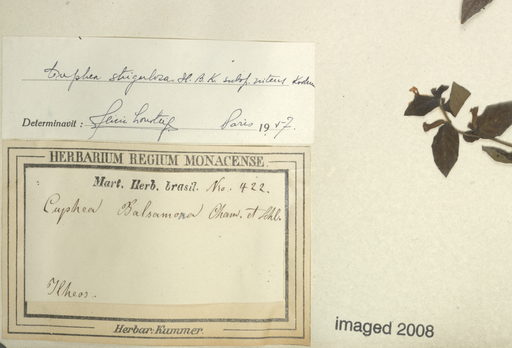 Cuphea strigulosa H. B. K. subsp. nitens Koehne
Determinavit : Paris 1957.
HERBARIUM REGIUM MONACENSE.
Mart. Herb. brasil. Nro. 422.
Cuphea Balsamona Cham. et Schl.
Ilheos.
Herbar: Kummer.
imaged 2008